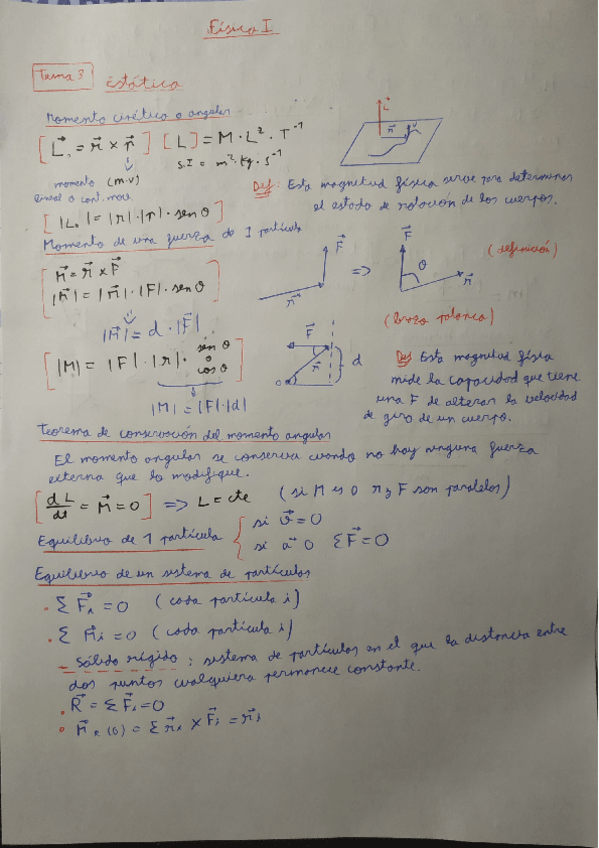 Física I
Tema 3 Estática
Momento cinético o angular
[L⃗o = r⃗ × p⃗] [L] = M · L² · T⁻¹
S.I = m² · kg · s⁻¹
momento (m·v)
lineal o cant. mov.
Def: Esta magnitud física sirve para determinar
el estado de rotación de los cuerpos.
[|Lo| = |r| · |p| · sen θ]
Momento de una fuerza de 1 partícula
M⃗ = r⃗ × F⃗
|M⃗| = |r⃗| · |F| · sen θ
F⃗
r⃗
=>
F⃗
θ
r⃗
(definición)
|M⃗| = d · |F⃗|
(brazo palanca)
[|M| = |F| · |r| · sen θ o cos θ]
|M| = |F| · |d|
F⃗
r⃗
d
O
Def Esta magnitud física
mide la capacidad que tiene
una F de alterar la velocidad
de giro de un cuerpo.
Teorema de conservación del momento angular
El momento angular se conserva cuando no hay ninguna fuerza
externa que lo modifique.
[dL/dt = M⃗ = 0] => L = cte (si M es 0 r y F son paralelos)
Equilibrio de 1 partícula { si v⃗ = 0
si a⃗ 0 ΣF⃗ = 0
Equilibrio de un sistema de partículas
· ΣF⃗i = 0 (cada partícula i)
· ΣM⃗i = 0 (cada partícula i)
- Sólido rígido: sistema de partículas en el que la distancia entre
dos puntos cualquiera permanece constante.
· R⃗ = ΣF⃗i = 0
· M⃗R (O) = Σr⃗i × F⃗i =